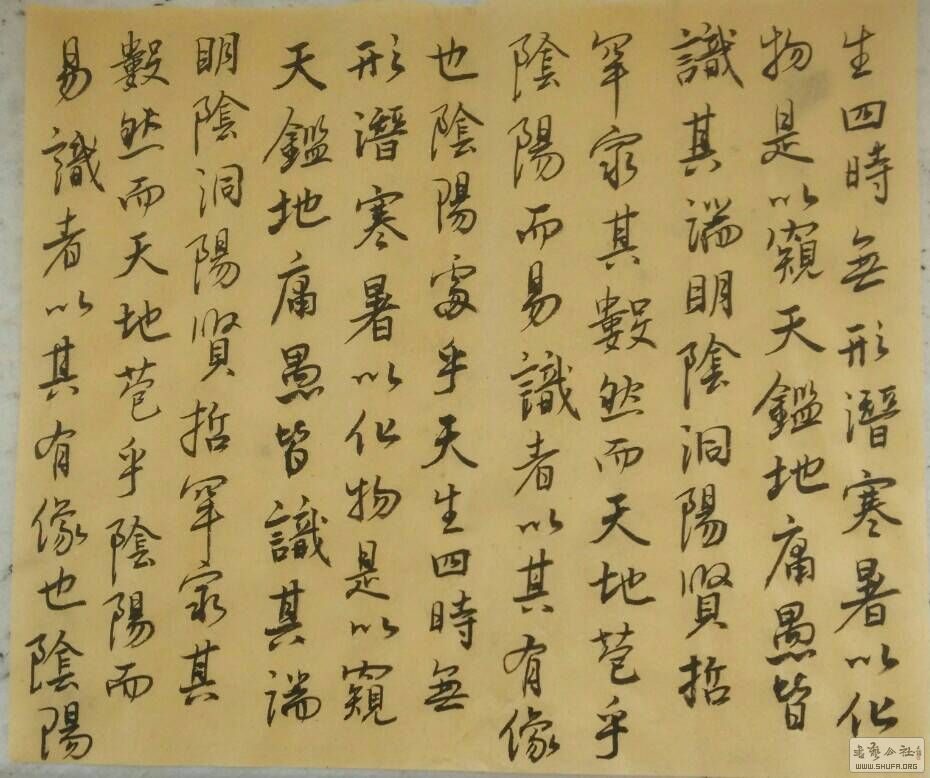 生四時無形潛寒暑以化
物是以窺天鑑地庸愚皆
識其端明陰洞陽賢哲
罕窮其數然而天地苞乎
陰陽而易識者以其有像
也陰陽處乎天生四時無
形潛寒暑以化物是以窺
天鑑地庸愚皆識其端
明陰洞陽賢哲罕窮其
數然而天地苞乎陰陽而
易識者以其有像也陰陽
书艺公社
WWW.SHUFA.ORG